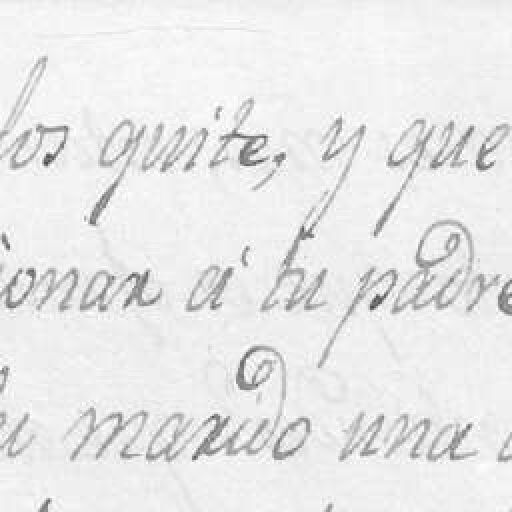 los quite, y que
ionar á tu padre
tu marido una